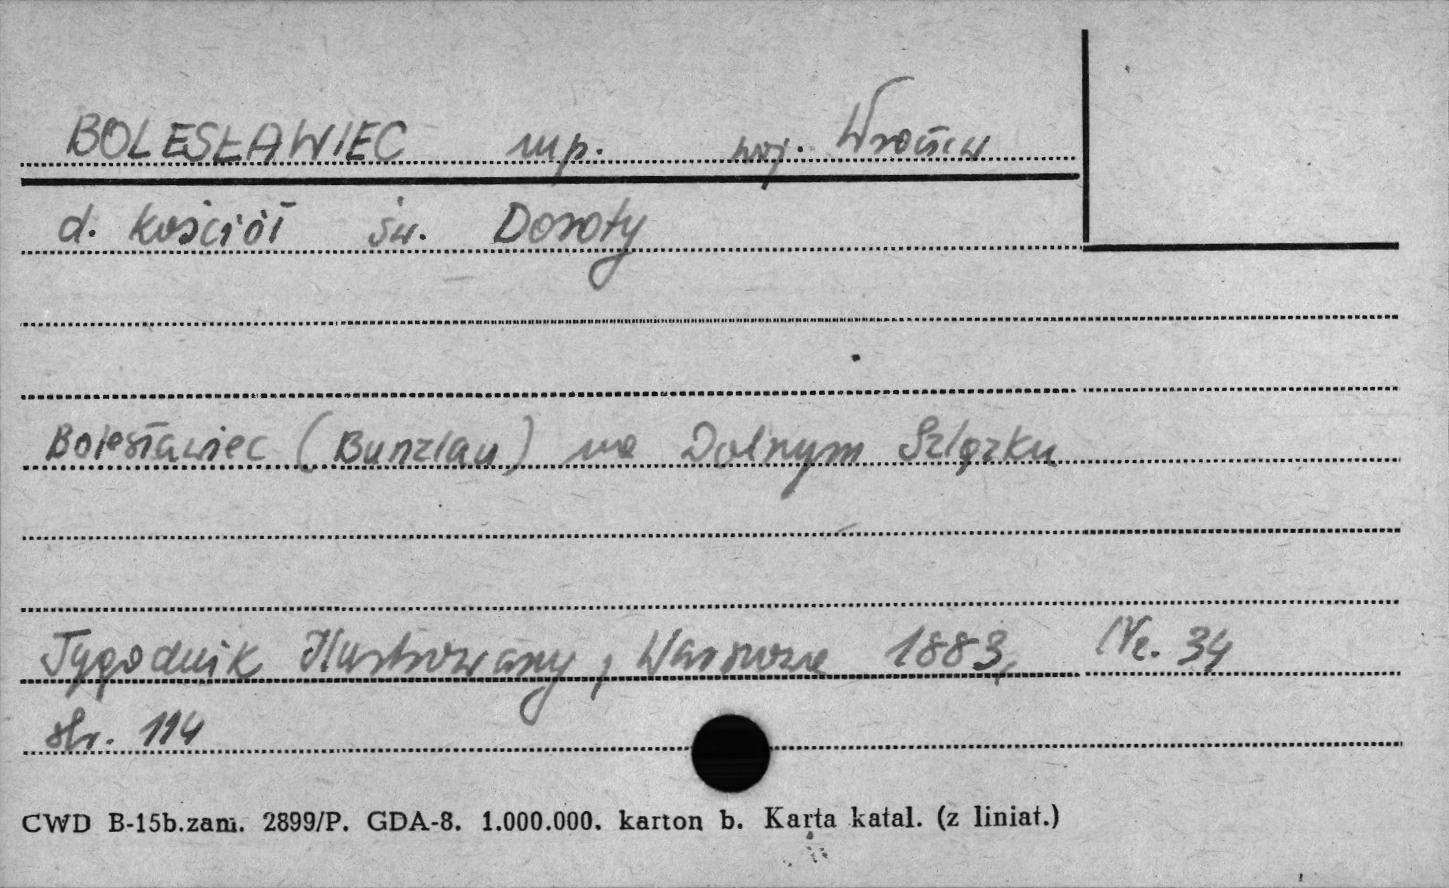 BOLESŁAWIEC mp. woj. Wrocław
d. kościół św. Doroty
Bolesławiec (Bunzlau) na Dolnym Szlązku
Tygodnik Ilustrowany, Warszawa 1883, Nr. 34
str. 114
CWD B-15b.zam. 2899/P. GDA-8. 1.000.000. karton b. Karta katal. (z liniat.)